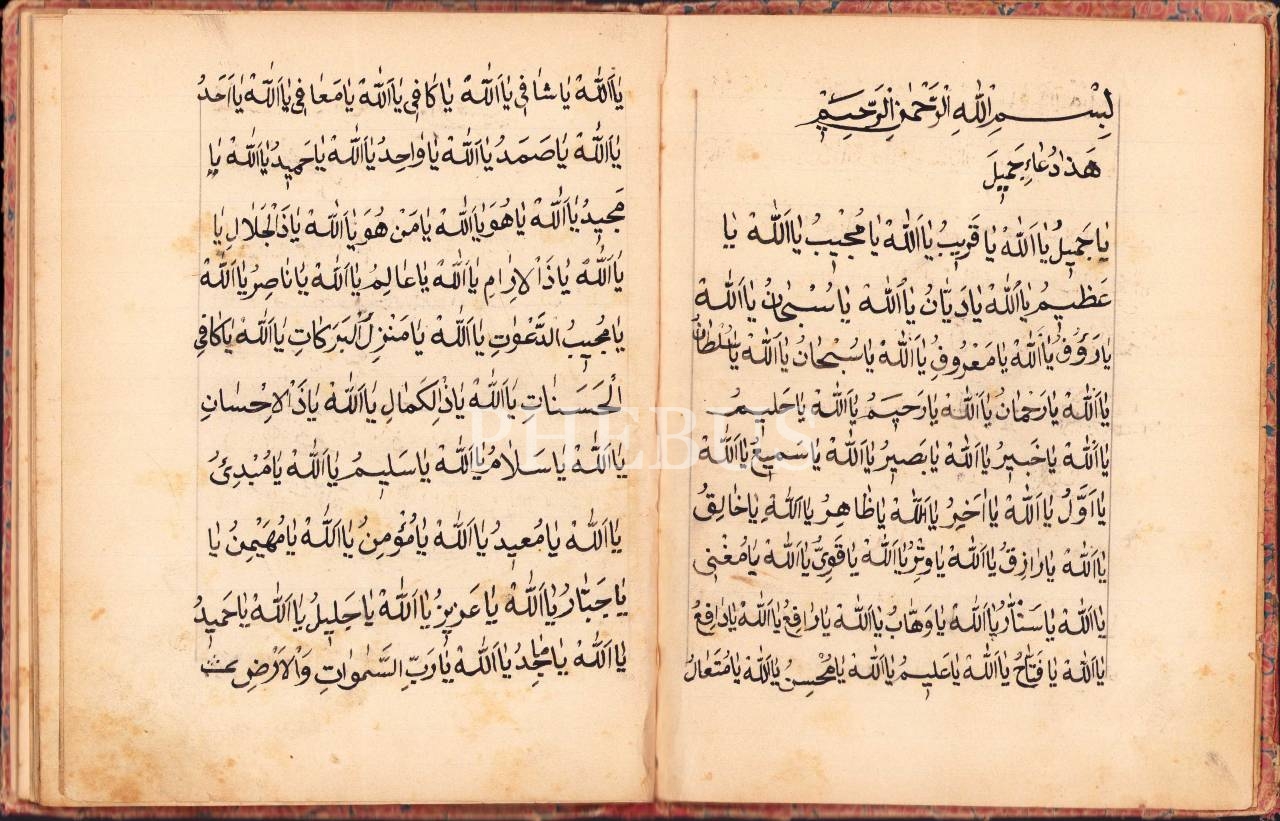 بِسْمِ اللّٰهِ الرَّحْمٰنِ الرَّحِيمِ
هَذٰا دُعٰاءِ جَمِيلَ
يٰا جَمِيلُ يٰا اَللّٰهْ يٰا قَرِيبُ يٰا اَللّٰهْ يٰا مُجْيبُ يٰا اَللّٰهْ يٰا
عَظٖيمُ يٰا اَللّٰهْ يٰا دَيّٰانُ يٰا اَللّٰهْ يٰا سُبْحٰانُ يٰا اَللّٰهْ
يٰا رَؤُفُ يٰا اَللّٰهْ يٰا مَعْرُوفِ يٰا اَللّٰهْ يٰا سُبْحٰانُ يٰا اَللّٰهْ يٰا سُلْطٰانُ
يٰا اَللّٰهْ يٰا رَحْمٰانُ يٰا اَللّٰهْ يٰا رَحِيمُ يٰا اَللّٰهْ يٰا حَلِيمُ
يٰا اَللّٰهْ يٰا خَبِيرُ يٰا اَللّٰهْ يٰا بَصِيرُ يٰا اَللّٰهْ يٰا سَمِيعُ يٰا اَللّٰهْ
يٰا اَوَّلُ يٰا اَللّٰهْ يٰا اٰخِرُ يٰا اَللّٰهْ يٰا ظٰاهِرُ يٰا اَللّٰهْ يٰا خٰالِقُ
يٰا اَللّٰهْ يٰا رٰازِقُ يٰا اَللّٰهْ يٰا وِتْرُ يٰا اَللّٰهْ يٰا قَوِيُّ يٰا اَللّٰهْ يٰا مُغْنِى
يٰا اَللّٰهْ يٰا سَتّٰارُ يٰا اَللّٰهْ يٰا وَهّٰابُ يٰا اَللّٰهْ يٰا رٰافِعُ يٰا اَللّٰهْ يٰا دٰافِعُ
يٰا اَللّٰهْ يٰا فَتّٰاحُ يٰا اَللّٰهْ يٰا عَلِيمُ يٰا اَللّٰهْ يٰا مُحْسِنُ يٰا اَللّٰهْ يٰا مُتَعٰالُ
يٰا اَللّٰهْ يٰا شٰافِي يٰا اَللّٰهْ يٰا كٰافِي يٰا اَللّٰهْ يٰا مَعٰافِي يٰا اَللّٰهْ يٰا اَحَدُ
يٰا اَللّٰهْ يٰا صَمَدُ يٰا اَللّٰهْ يٰا وٰاحِدُ يٰا اَللّٰهْ يٰا حَمِيدُ يٰا اَللّٰهْ يٰا
مَجِيدُ يٰا اَللّٰهْ يٰا هُوَ يٰا اَللّٰهْ يٰا مَنْ هُوَ يٰا اَللّٰهْ يٰا ذَالْجَلٰالِ يٰا
يٰا اَللّٰهْ يٰا ذَالْاِرٰامِ يٰا اَللّٰهْ يٰا عٰالِمُ يٰا اَللّٰهْ يٰا نٰاصِرُ يٰا اَللّٰهْ
يٰا مُجِيبُ الدَّعْوٰتِ يٰا اَللّٰهْ يٰا مَنْزِلَ الْبَرَكٰاتِ يٰا اَللّٰهْ يٰا كٰافِي
الْحَسَنٰاتِ يٰا اَللّٰهْ يٰا ذَالكَمٰالِ يٰا اَللّٰهْ يٰا ذَالْاِحْسٰانِ
يٰا اَللّٰهْ يٰا سَلٰامُ يٰا اَللّٰهْ يٰا سَلِيمُ يٰا اَللّٰهْ يٰا مُبْدِئُ
يٰا اَللّٰهْ يٰا مُعِيدُ يٰا اَللّٰهْ يٰا مُؤْمِنُ يٰا اَللّٰهْ يٰا مُهَيْمِنُ يٰا
يٰا جَبّٰارُ يٰا اَللّٰهْ يٰا عَزِيزُ يٰا اَللّٰهْ يٰا جَلِيلُ يٰا اَللّٰهْ يٰا حَمِيدُ
يٰا اَللّٰهْ يٰا مٰاجِدُ يٰا اَللّٰهْ يٰا رَبِّ السَّمٰوٰاتِ وَالْاَرْضِ
PHEBUS